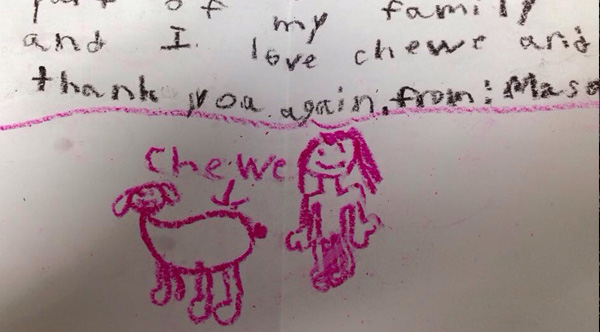 part of my family
and I love chewe and
thank you again. from: Maso
Chewe